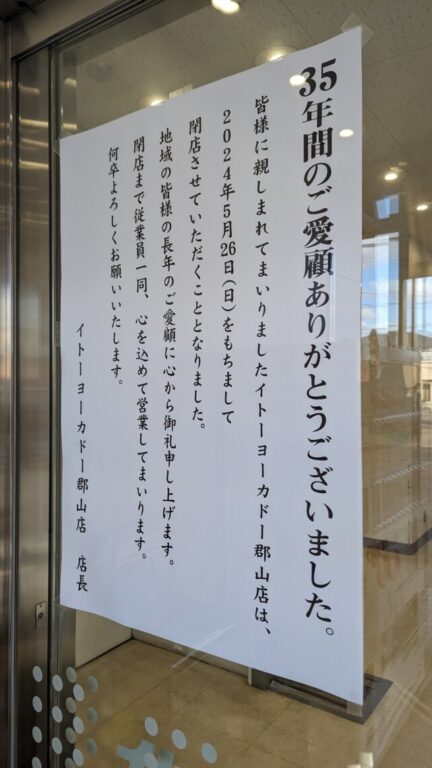 35年間のご愛顧ありがとうございました。
皆様に親しまれてまいりましたイトーヨーカドー郡山店は、
2024年5月26日(日)をもちまして
閉店させていただくこととなりました。
地域の皆様の長年のご愛顧に心から御礼申し上げます。
閉店まで従業員一同、心を込めて営業してまいります。
何卒よろしくお願いいたします。
イトーヨーカドー郡山店 店長